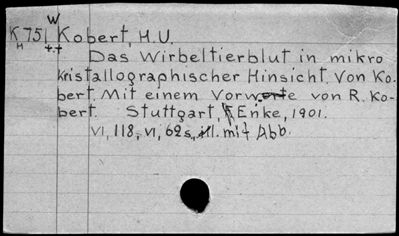 W
K 751 Kobert, H.U.
H ++
Das Wirbeltierblut in mikro
kristallographischer Hinsicht. Von Ko-
bert. Mit einem Vorworte von R. Ko-
bert. Stuttgart, F. Enke, 1901.
VI, 118, VI, 62 s, ill. mit Abb.